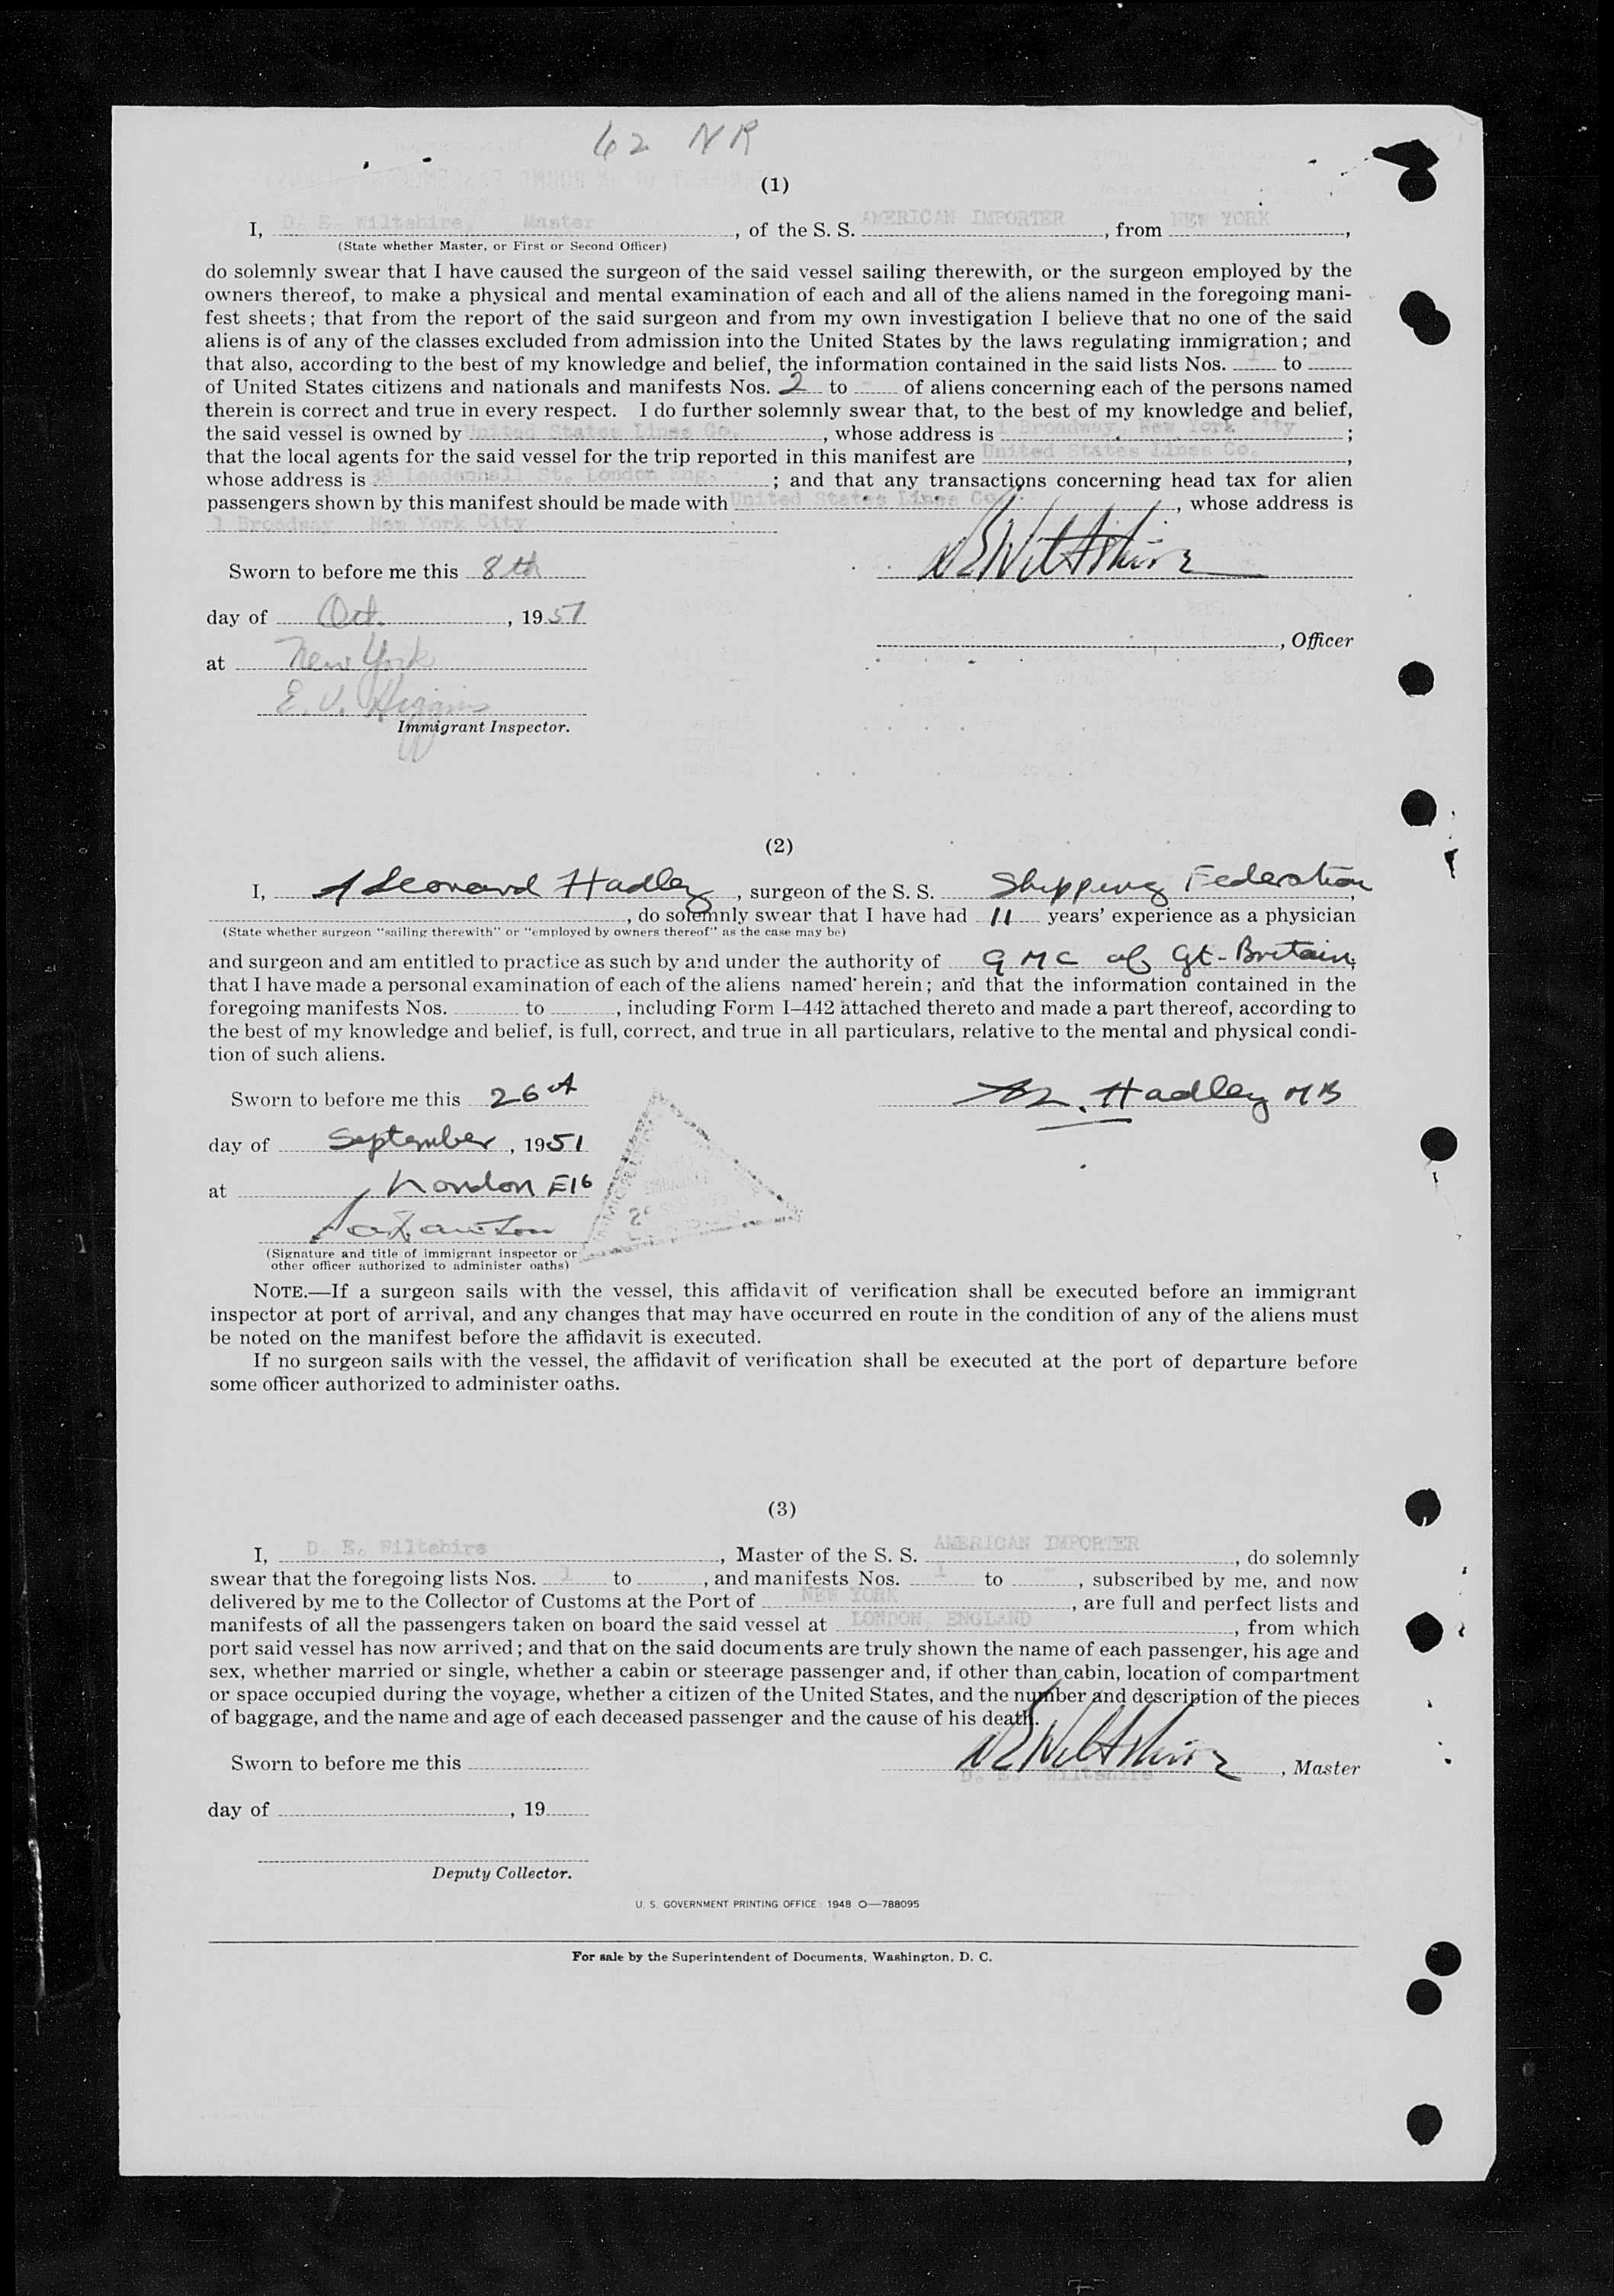 62 NR
(1)
I, D. E. Wiltshire, Master, of the S. S. AMERICAN IMPORTER, from NEW YORK,
(State whether Master, or First or Second Officer)
do solemnly swear that I have caused the surgeon of the said vessel sailing therewith, or the surgeon employed by the
owners thereof, to make a physical and mental examination of each and all of the aliens named in the foregoing mani-
fest sheets; that from the report of the said surgeon and from my own investigation I believe that no one of the said
aliens is of any of the classes excluded from admission into the United States by the laws regulating immigration; and
that also, according to the best of my knowledge and belief, the information contained in the said lists Nos. 1 to -
of United States citizens and nationals and manifests Nos. 2 to - of aliens concerning each of the persons named
therein is correct and true in every respect. I do further solemnly swear that, to the best of my knowledge and belief,
the said vessel is owned by United States Lines Co., whose address is 1 Broadway, New York City;
that the local agents for the said vessel for the trip reported in this manifest are United States Lines Co.,
whose address is 38 Leadenhall St. London Eng.; and that any transactions concerning head tax for alien
passengers shown by this manifest should be made with United States Lines Co., whose address is
1 Broadway New York City
Sworn to before me this 8th
D E Wiltshire
day of Oct., 1951
, Officer
at New York
E. V. Higgins
Immigrant Inspector.
(2)
I, A Leonard Hadley, surgeon of the S. S. Shipping Federation,
, do solemnly swear that I have had 11 years' experience as a physician
(State whether surgeon "sailing therewith" or "employed by owners thereof" as the case may be)
and surgeon and am entitled to practice as such by and under the authority of GMC of Gt-Britain;
that I have made a personal examination of each of the aliens named herein; and that the information contained in the
foregoing manifests Nos. to , including Form I–442 attached thereto and made a part thereof, according to
the best of my knowledge and belief, is full, correct, and true in all particulars, relative to the mental and physical condi-
tion of such aliens.
Sworn to before me this 26th
Hadley MB
day of September, 1951
at London E16
(Signature and title of immigrant inspector or
other officer authorized to administer oaths)
NOTE.—If a surgeon sails with the vessel, this affidavit of verification shall be executed before an immigrant
inspector at port of arrival, and any changes that may have occurred en route in the condition of any of the aliens must
be noted on the manifest before the affidavit is executed.
If no surgeon sails with the vessel, the affidavit of verification shall be executed at the port of departure before
some officer authorized to administer oaths.
(3)
I, D. E. Wiltshire, Master of the S. S. AMERICAN IMPORTER, do solemnly
swear that the foregoing lists Nos. 1 to -, and manifests Nos. 1 to -, subscribed by me, and now
delivered by me to the Collector of Customs at the Port of NEW YORK, are full and perfect lists and
manifests of all the passengers taken on board the said vessel at LONDON, ENGLAND, from which
port said vessel has now arrived; and that on the said documents are truly shown the name of each passenger, his age and
sex, whether married or single, whether a cabin or steerage passenger and, if other than cabin, location of compartment
or space occupied during the voyage, whether a citizen of the United States, and the number and description of the pieces
of baggage, and the name and age of each deceased passenger and the cause of his death.
Sworn to before me this
D E Wiltshire, Master
D. E. Wiltshire
day of , 19
Deputy Collector.
U. S. GOVERNMENT PRINTING OFFICE : 1948 O—788095
For sale by the Superintendent of Documents, Washington, D. C.